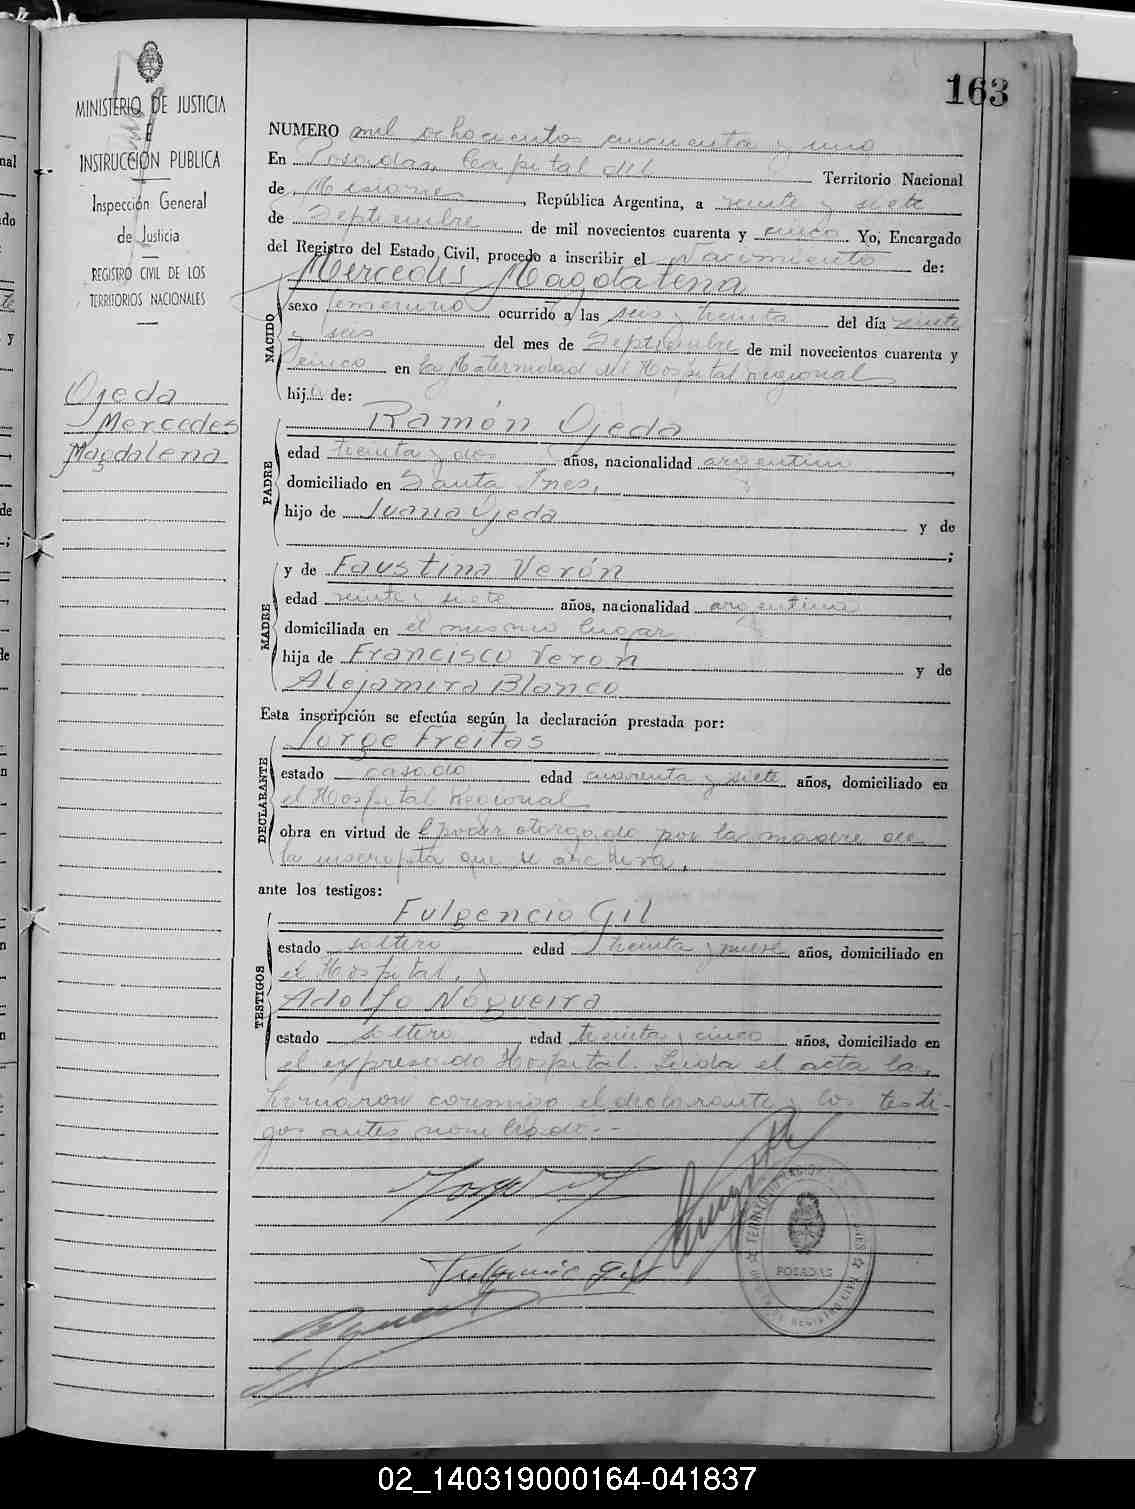 163
MINISTERIO DE JUSTICIA
E
INSTRUCCIÓN PUBLICA
Inspección General
de Justicia
REGISTRO CIVIL DE LOS
TERRITORIOS NACIONALES
Ojeda
Mercedes
Magdalena
NUMERO mil ochocientos cincuenta y uno
En Posadas, Capital del Territorio Nacional
de Misiones, República Argentina, a veinte y siete
de Septiembre de mil novecientos cuarenta y cinco. Yo, Encargado
del Registro del Estado Civil, procedo a inscribir el Nacimiento de:
Mercedes Magdalena
NACIDO
sexo femenino ocurrido a las seis y treinta del día veinte
y seis del mes de Septiembre de mil novecientos cuarenta y
cinco en la Maternidad del Hospital regional
hija de:
PADRE
Ramón Ojeda
edad treinta y dos años, nacionalidad argentino
domiciliado en Santa Ines,
hijo de Juana Ojeda y de
;
MADRE
y de Faustina Verón
edad veinte y siete años, nacionalidad argentina
domiciliada en el mismo lugar
hija de Francisco Veron y de
Alejamira Blanco
Esta inscripción se efectúa según la declaración prestada por:
DECLARANTE
Jorge Freitas
estado casado edad cuarenta y siete años, domiciliado en
el Hospital Regional
obra en virtud de poder otorgado por la madre de
la inscripta que se archiva.
ante los testigos:
TESTIGOS
Fulgencio Gil
estado soltero edad treinta y nueve años, domiciliado en
el Hospital, y
Adolfo Nogueira
estado soltero edad treinta y cinco años, domiciliado en
el expresado Hospital. Leida el acta la
firmaron conmigo el declarante y los testi-
gos antes nombrado.-
Jorge
Fulgencio Gil
POSADAS
REGISTRO CIVIL
02_140319000164-041837